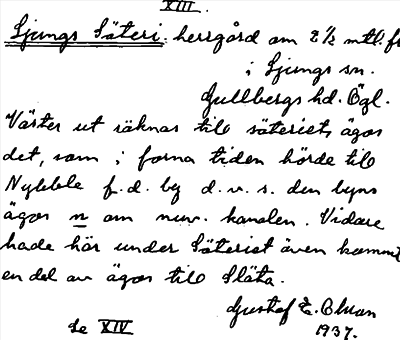 XIII.
Ljungs Säteri. herrgård om 2 1/2 mtl. fr
i Ljungs sn.
Gullbergs hd. Ögl.
Väster ut räknas till säteriets ägor
det, som i forna tiden hörde till
Nybble f.d. by d.v.s. den byns
ägor n om nuv. kanalen. Vidare
hade hör under Säteriet även kommit
en del av ägor till Släta.
Gustaf E.
1937.
Se XIV